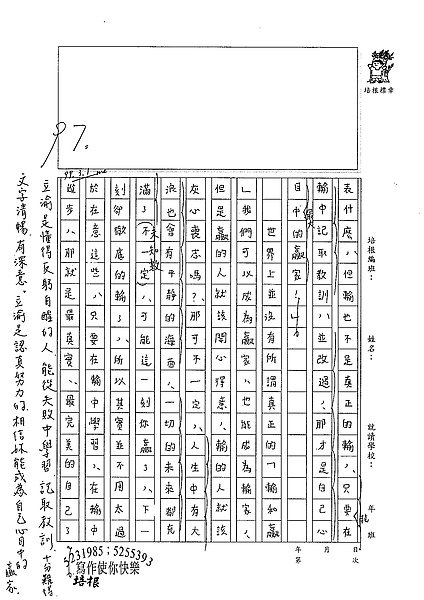 培根標章
培根編班：
姓名：
就讀學校：
年
班
年
月
日
第
次
97.
表什麼，但輸也不是真正的輸，只要在
輸中記取教訓，並改過，那才是自己心
目中的最大贏家！
世界上並沒有所謂真正的「輸和贏
」我們可以成為贏家，也能成為輸家，
但是贏的人就該開心得意，輸的人就該
灰心喪志嗎？那可不一定，人生中有大
浪也會有平靜的海面，一切的未來都充
滿了(不一定)，可能這一刻你贏了，下一
未知數
刻卻徹底的輸了，所以其實並不用太過
於在意這些，只要在輸中學習，在輸中
進步，那就是最真實、最完美的自己了
立瑜是懂得反躬自省的人，能從失敗中學習，記取教訓，十分難得
文字清暢，有深意。立瑜是認真努力的，相信妳能成為自己心目中的贏家
5231985；5255393
培根
寫作使你快樂